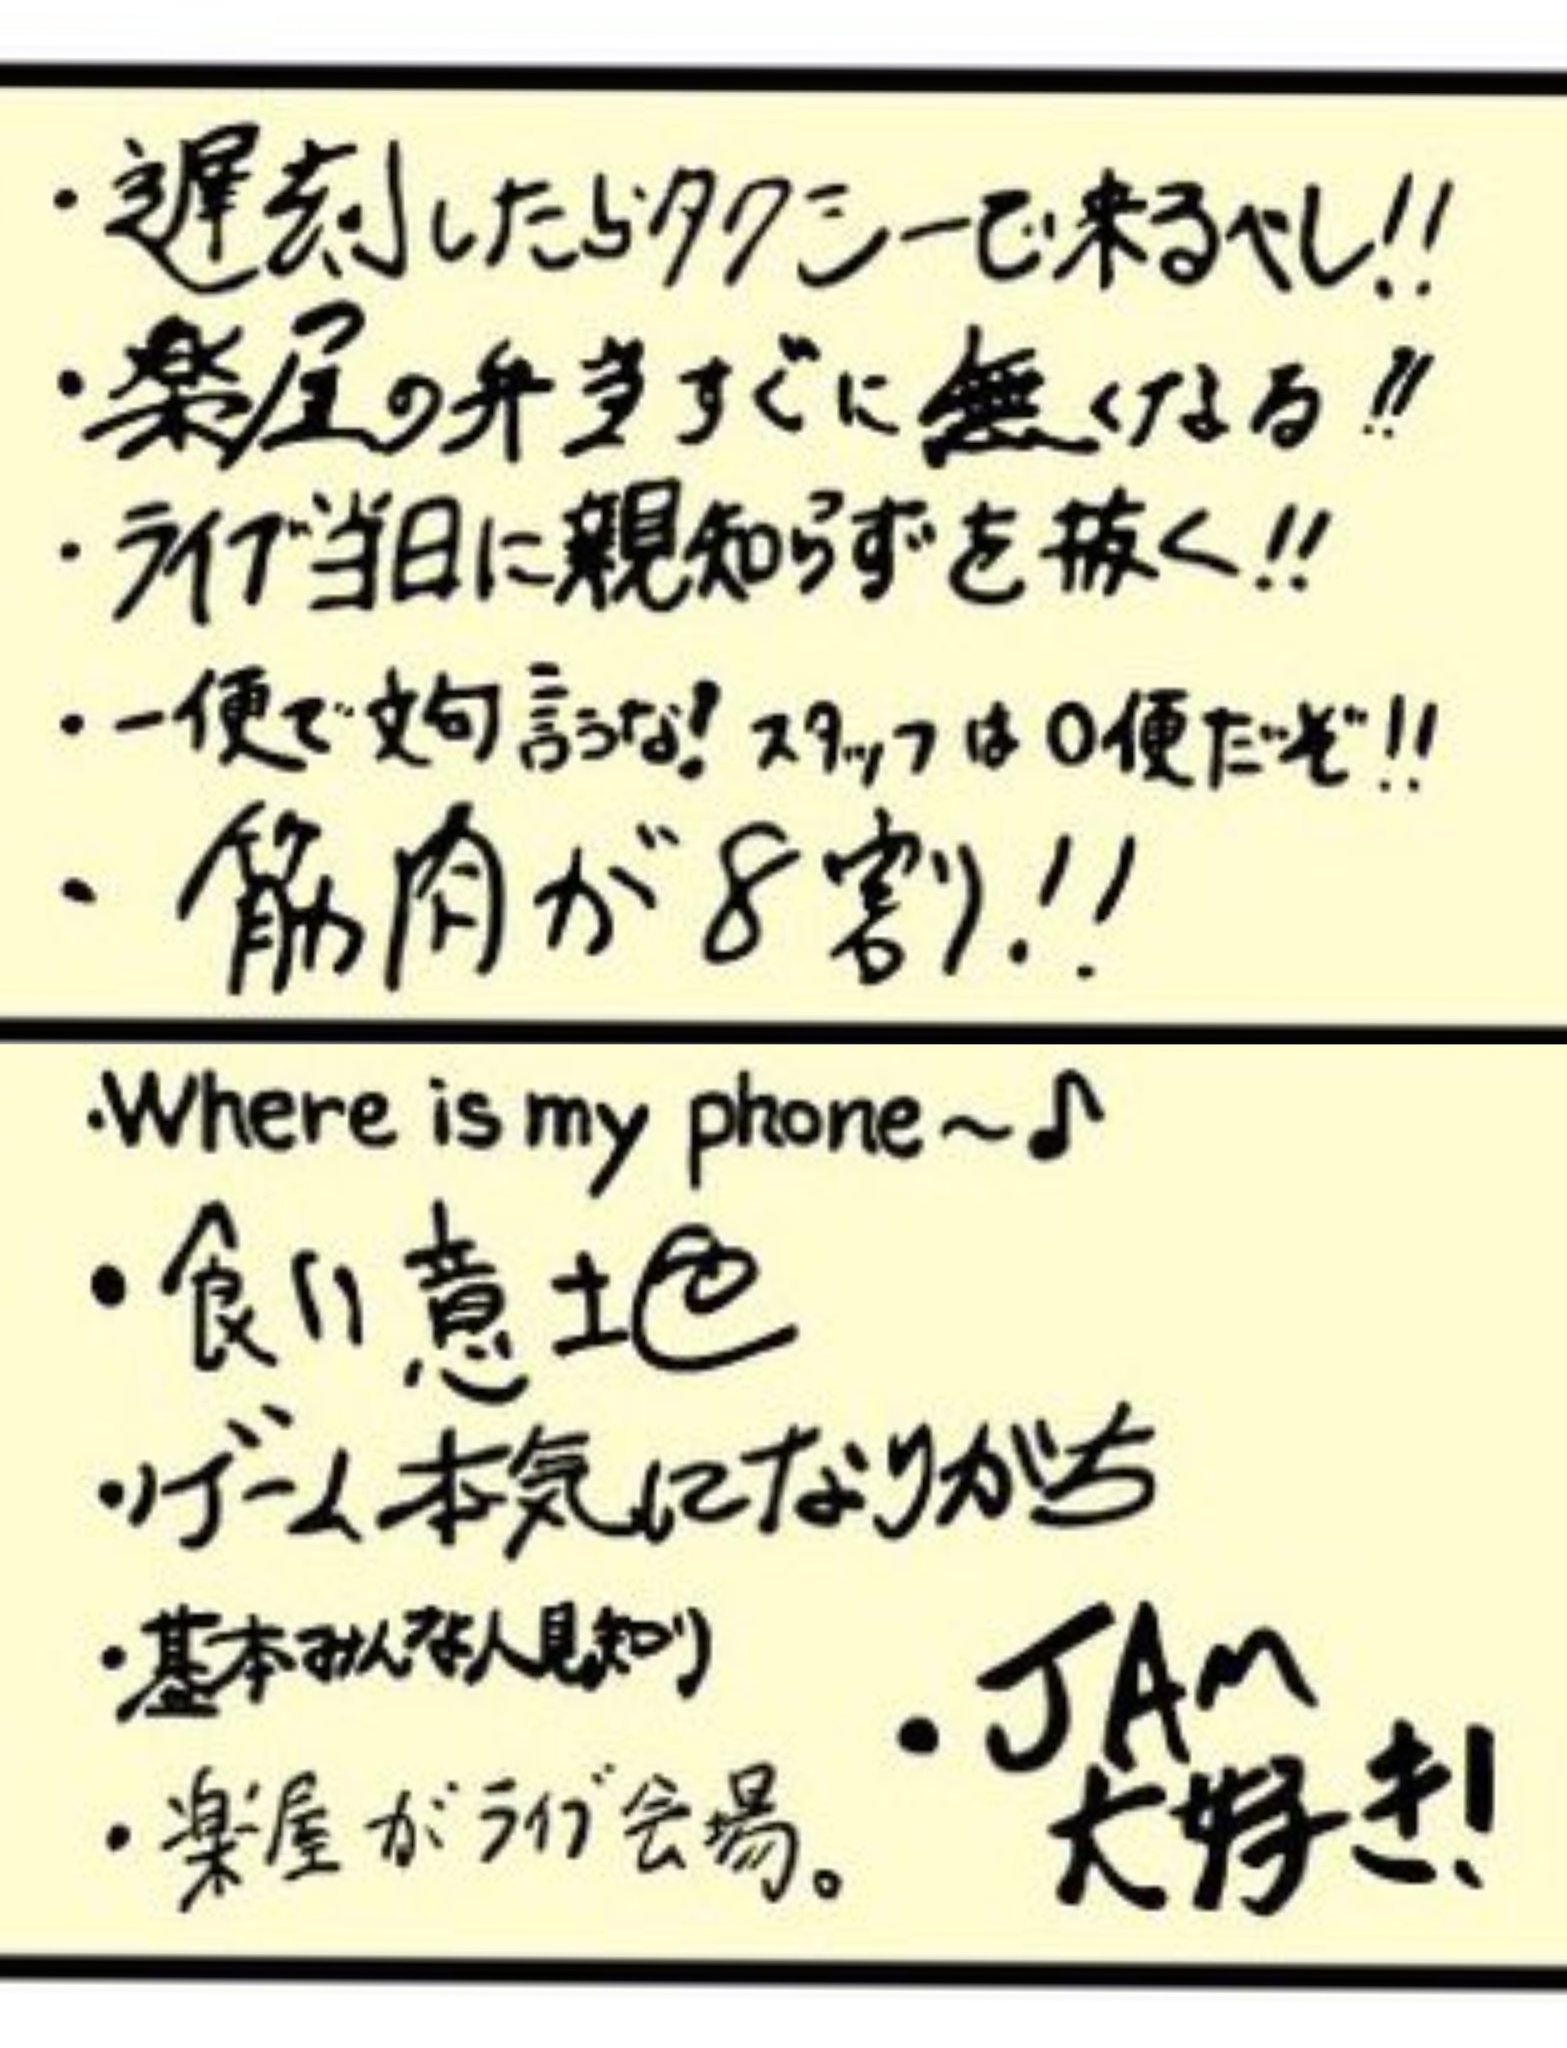 ・遅刻したらタクシーで来るべし!!
・楽屋の弁当すぐに無くなる!!
・ライブ当日に親知らずを抜く!!
・一便で文句言うな!スタッフは0便だぞ!!
・筋肉が8割!!
・Where is my phone〜♪
・食い意地
・ゲーム本気になりがち
・基本みんな人見知り
・楽屋がライブ会場。
・JAM
大好き!